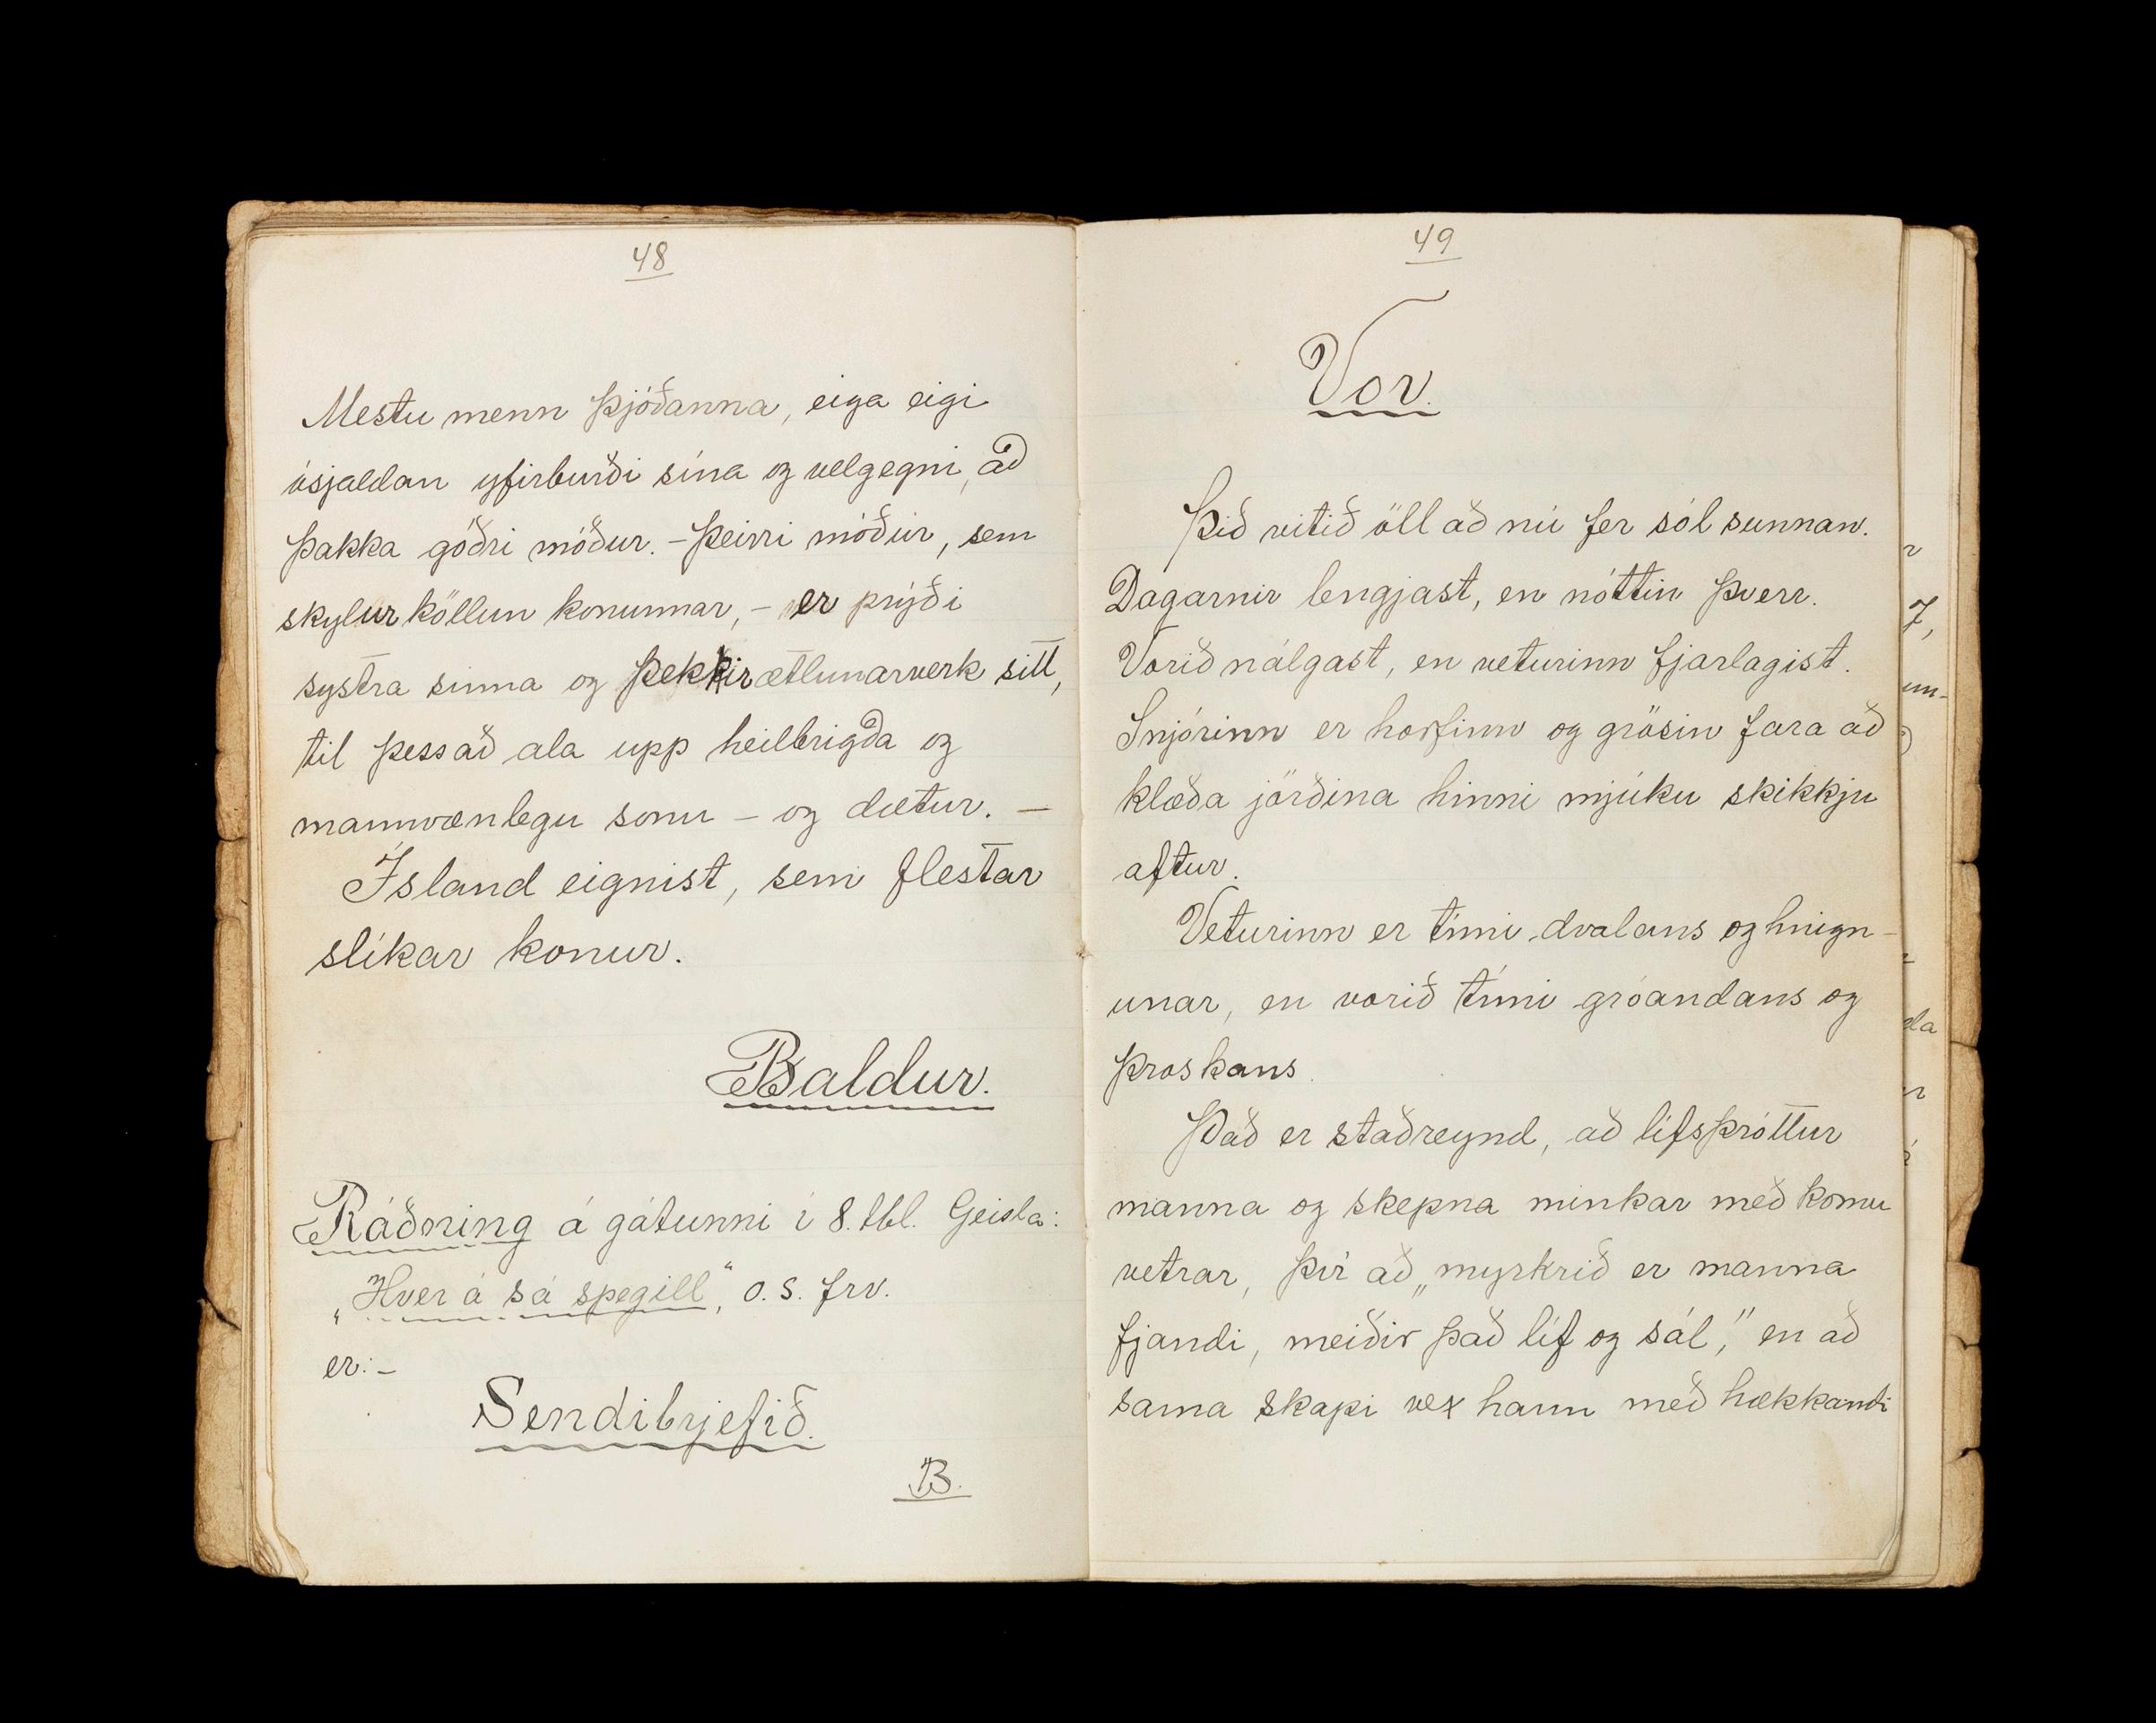 48
Mestu menn þjóðanna, eiga eigi
ósjaldan yfirburði sína og velgegni, að
þakka góðri móður. - Þeirri móður, sem
skylur köllun konunnar, - er prýði
systra sinna og þekkir ætlunarverk sitt,
til þess að ala upp heilbrigða og
mannvænlegu sonu - og dætur. -
Ísland eignist, sem flestar
slíkar konur.
Baldur.
Ráðning á gátunni í 8. tbl. Geisla:
„Hver á sá spegill", o. s. frv.
er: -
Sendibrjefið.
B.
49
Vor.
Þið vitið öll að nú fer sól sunnan.
Dagarnir lengjast, en nóttin þverr.
Vorið nálgast, en veturinn fjarlagist.
Snjórinn er horfinn og grösin fara að
klæða jörðina hinni mjúku skikkju
aftur.
Veturinn er tími dvalans og hnign-
unar, en vorið tími gróandans og
þroskans.
Það er staðreynd, að lífsþróttur
manna og skepna minkar með komu
vetrar, því að „myrkrið er manna
fjandi, meiðir það líf og sál," en að
sama skapi vex hann með hækkandi